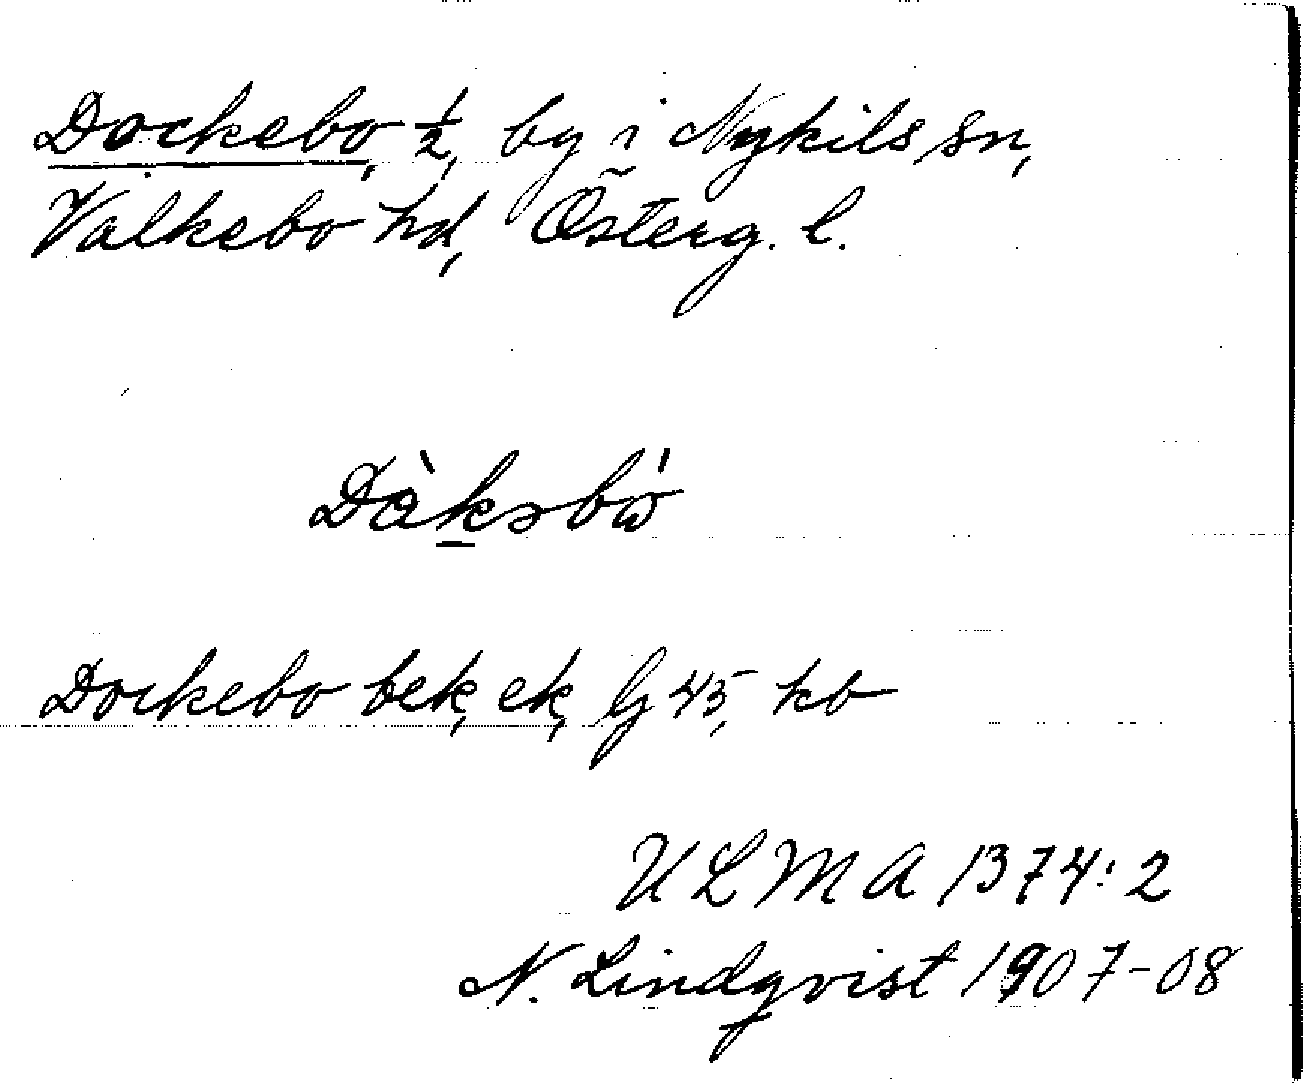 Dockebo, 1/2, by i Nykils sn,
Valkebo hd, Österg. l.
Dàkəbẃ
Dockebo bek, ek, lj 45, kb
ULMA 1374:2
N. Lindqvist 1907-08